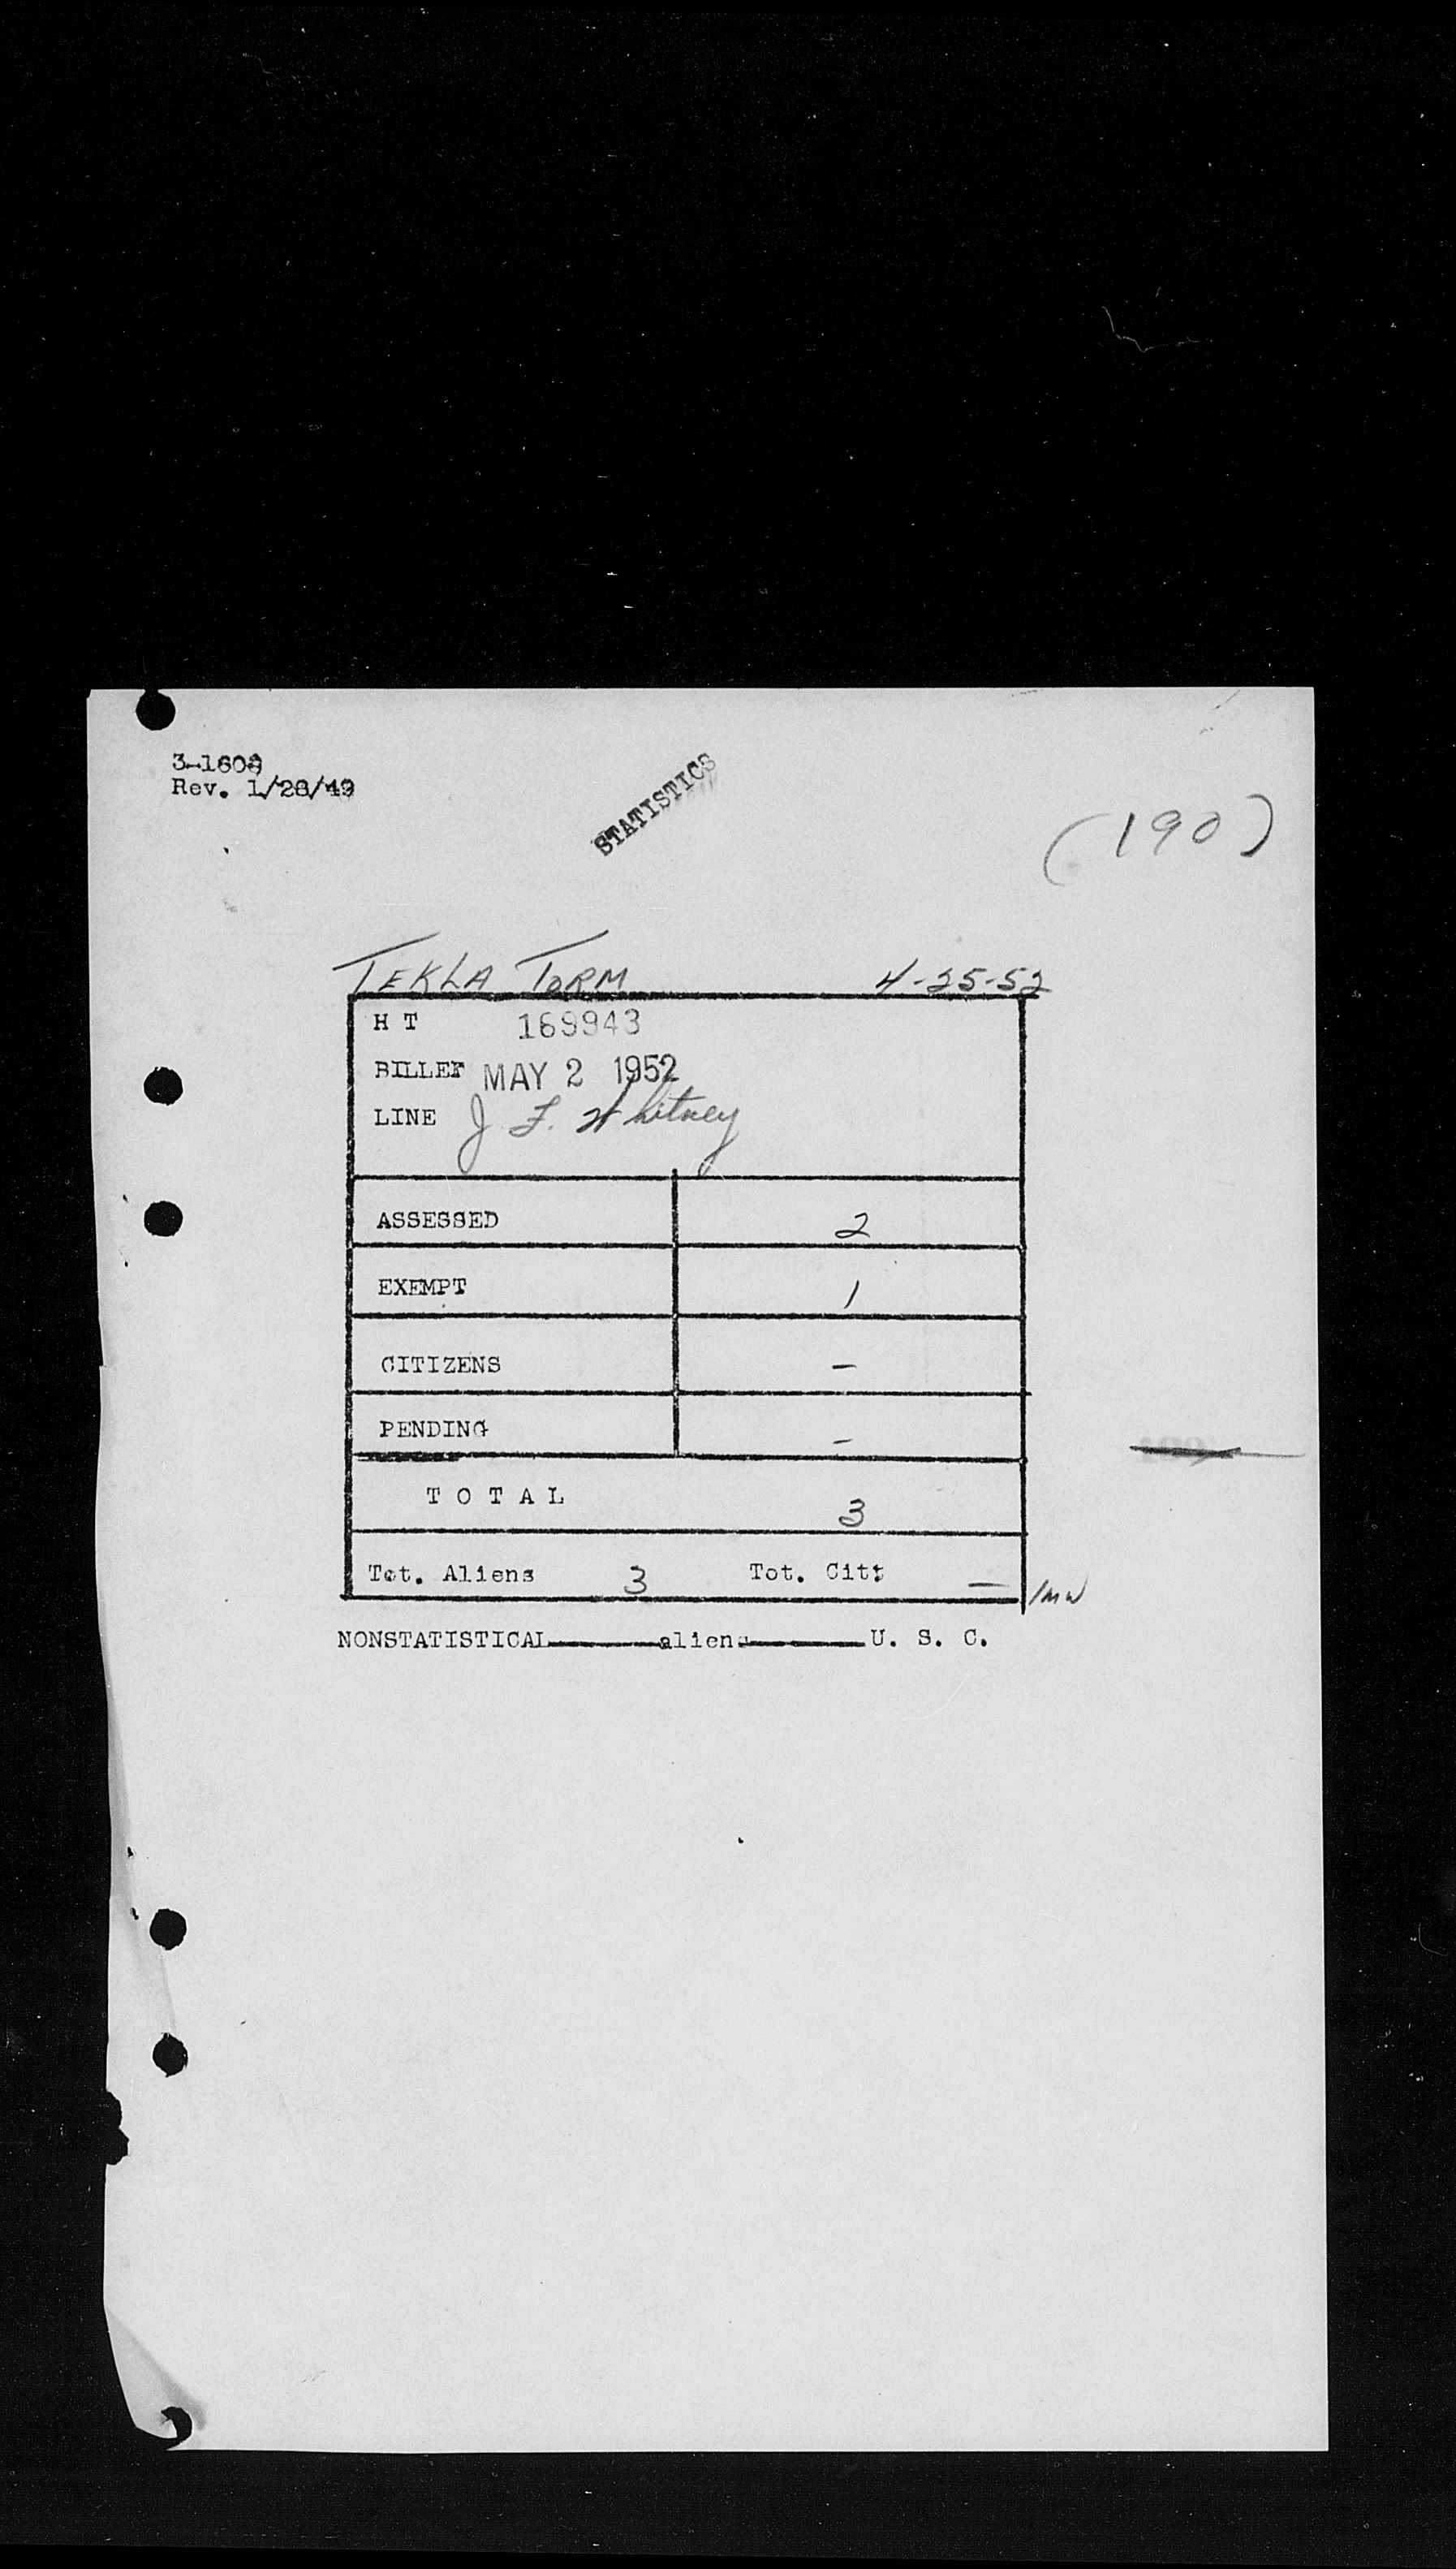 3-1608
Rev. 1/28/49
STATISTICS
(190)
TEKLA TORM 4-25-52
H T 169943
BILLED MAY 2 1952
LINE J F. Whitney
ASSESSED 2
EXEMPT 1
CITIZENS –
PENDING –
T O T A L 3
Tot. Aliens 3 Tot. Citz –
/MW
NONSTATISTICAL aliens U. S. C.